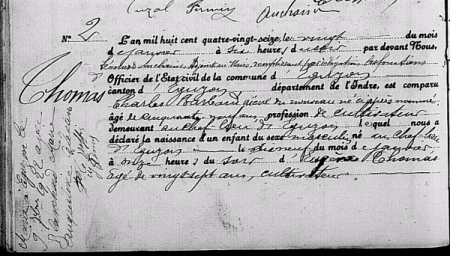 Auchaire
N.° 2 L'an mil huit cent quatre-vingt-seize, le vingt du mois
d janvier à six heures du soir par devant Nous,
Auchaire, Adjoint au Maire, remplissant par délégation les fonctions
Officier de l'Etat civil de la commune d' Eguzon
canton d' Eguzon département de l'Indre, est comparu
Thomas
Charles Barbaud aïeul du nouveau né ci après nommé
âgé de cinquante neuf ans, profession de cultivateur
demeurant au chef lieu d' Eguzon lequel nous a
déclaré la naissance d'un enfant du sexe masculin né au chef lieu
d' Eguzon le dix neuf du mois d janvier
à onze heures du soir d Thomas
âgé de vingt sept ans, cultivateur